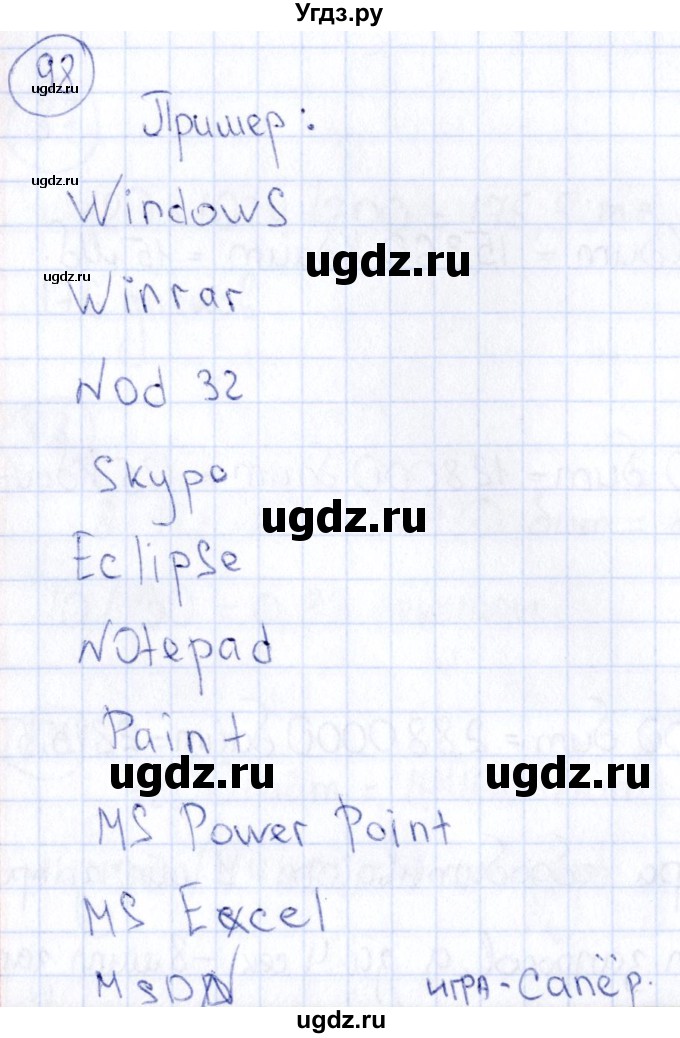 Угдз.ру
98
ugdz.ru
Пример:
ugdz.ru
Windows
ugdz.ru
ugdz.ru
Winrar
Nod 32
Skype
ugdz.ru
Eclipse
Notepad
Paint
ugdz.ru
ugdz.ru
MS Power Point
MS Excel
игра-Сапёр.
ugdz.ru